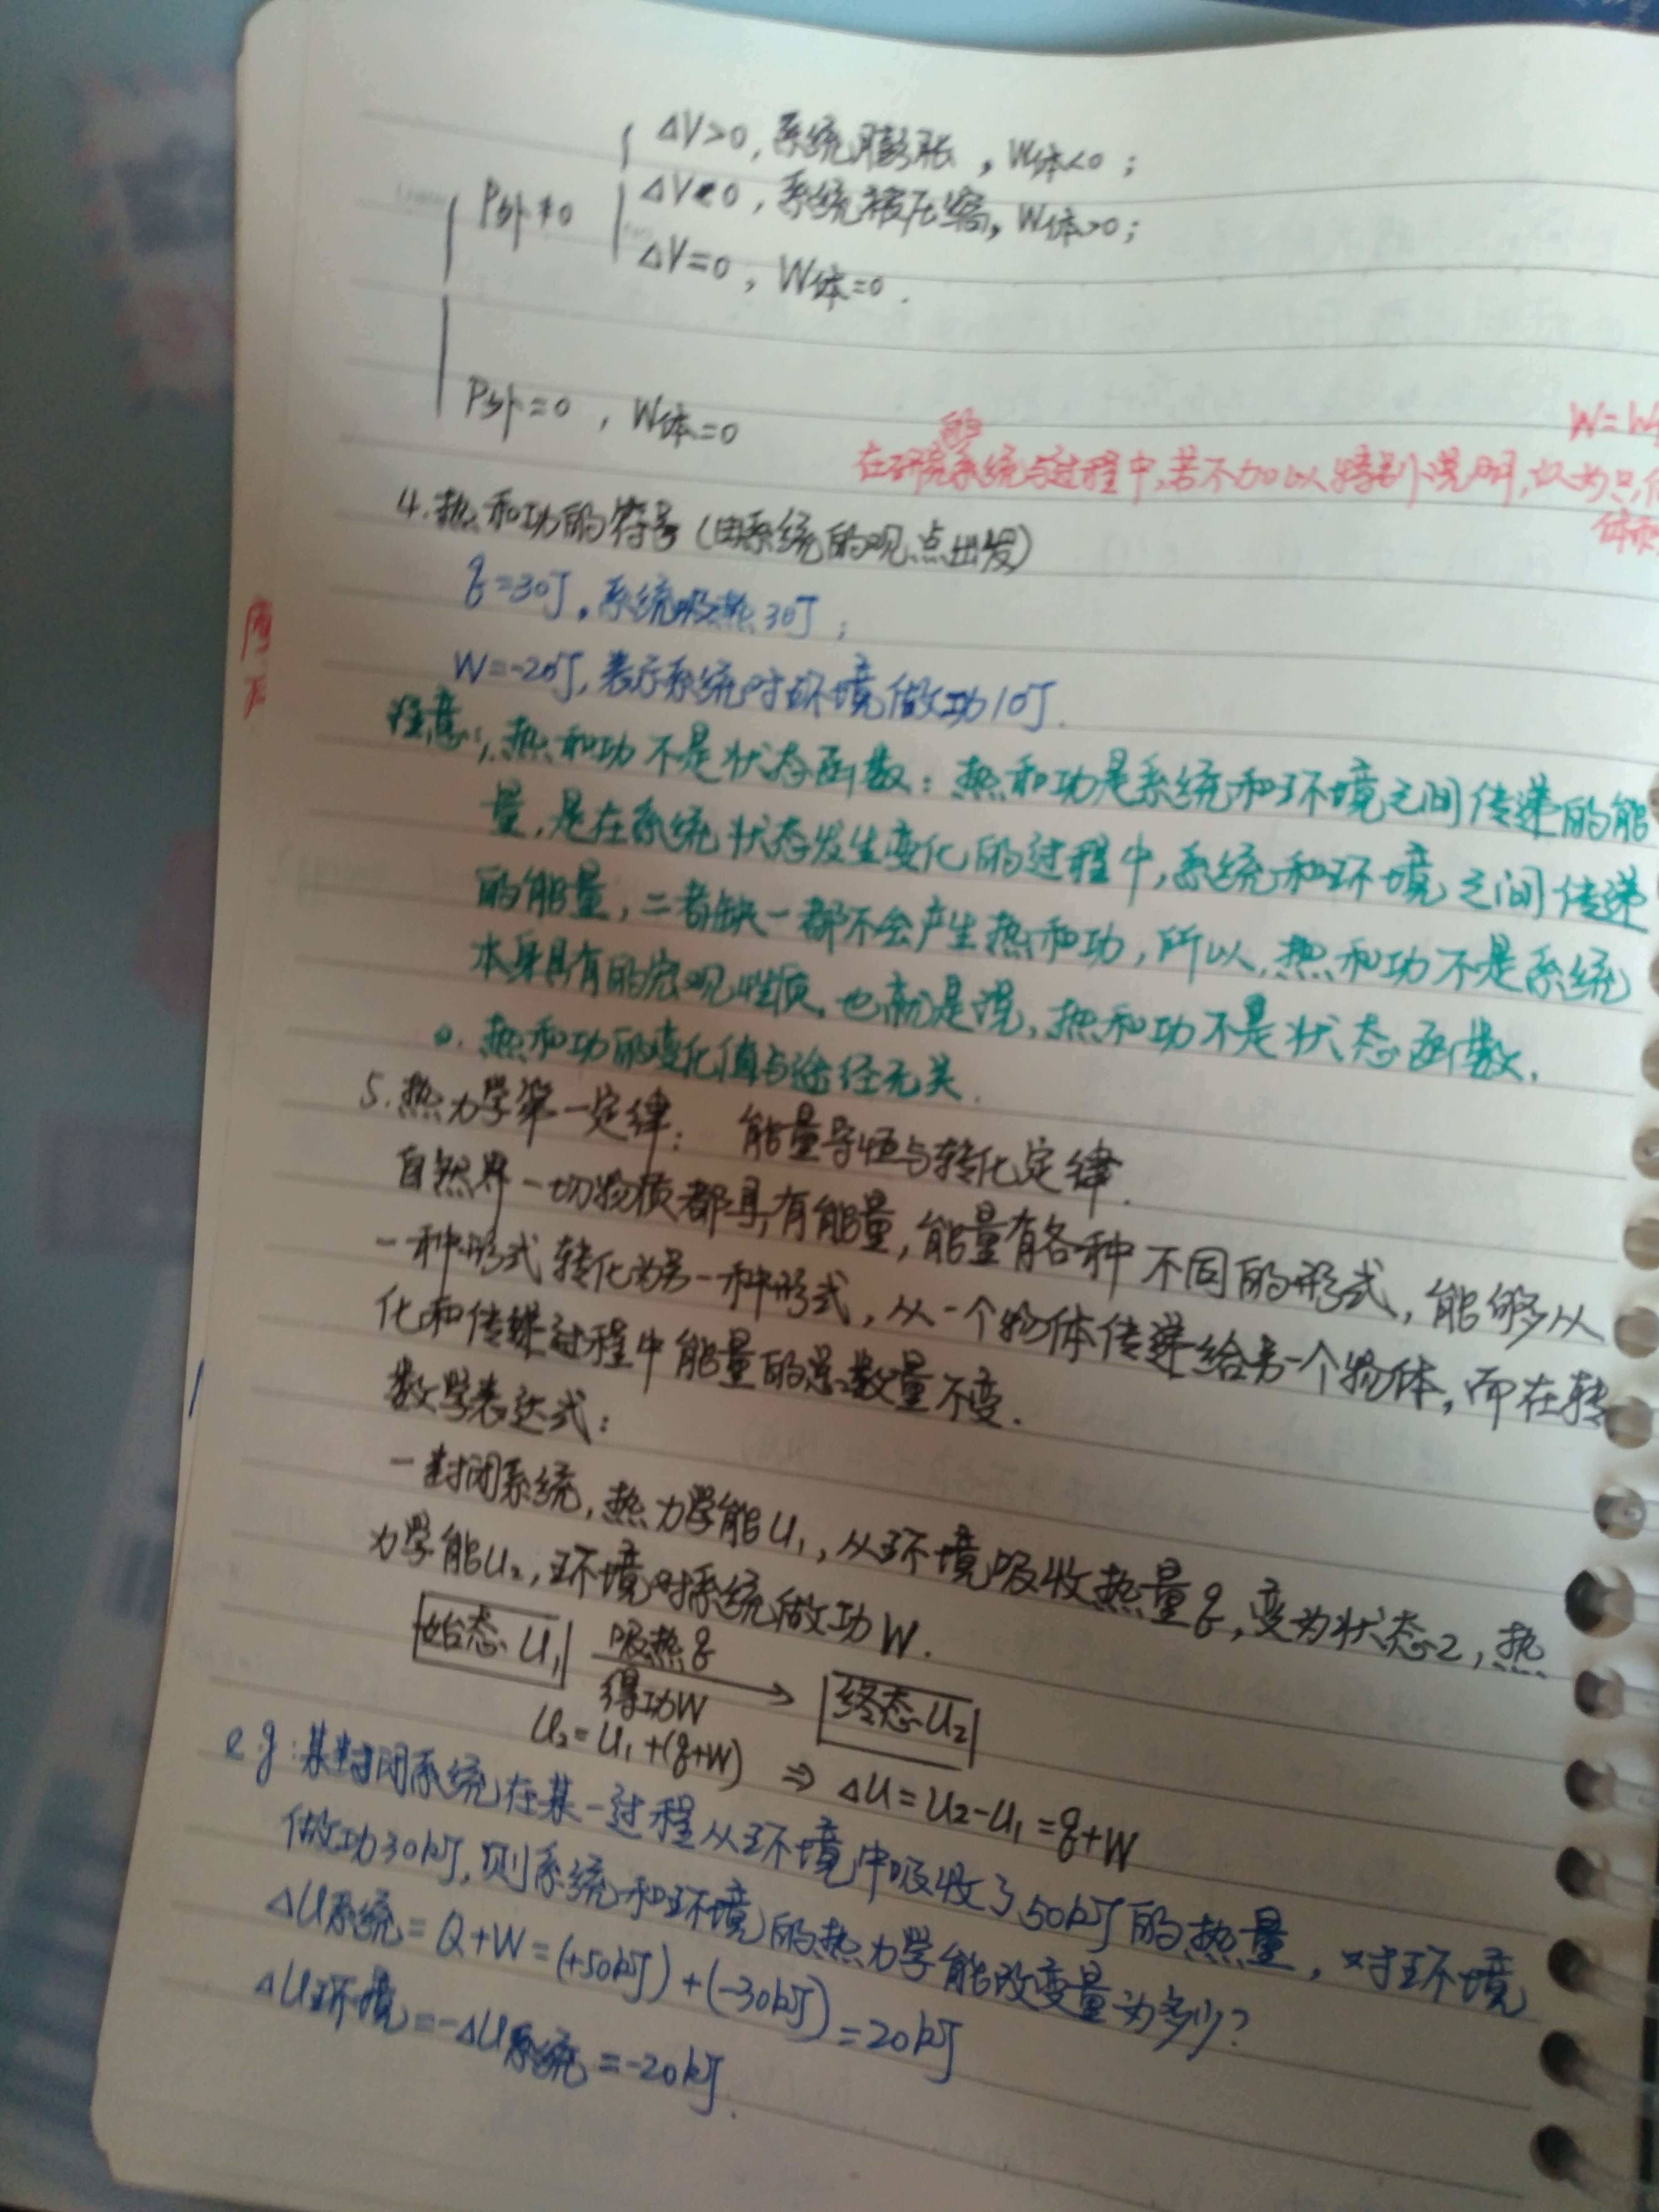 ΔV>0,系统膨胀,W体<0;
P外≠0
ΔV<0,系统被压缩,W体>0;
ΔV=0,W体=0.
P外=0,W体=0
W=W
的
在研究系统与过程中,若不加以特别说明,认为只
体
4.热和功的符号(由系统的观点出发)
q=30J,系统吸热30J;
W=-20J,表示系统对环境做功10J.
注意:,热和功不是状态函数:热和功是系统和环境之间传递的能
量,是在系统状态发生变化的过程中,系统和环境之间传递
的能量,二者缺一都不会产生热和功,所以,热和功不是系统
本身具有的宏观性质,也就是说,热和功不是状态函数.
热和功的变化值与途径无关.
5.热力学第一定律: 能量守恒与转化定律.
自然界一切物质都具有能量,能量有各种不同的形式,能够从
一种形式转化为另一种形式,从一个物体传递给另一个物体,而在转
化和传递过程中能量的总数量不变.
数学表达式:
一封闭系统,热力学能U₁,从环境吸收热量q,变为状态2,热
力学能U₂,环境对系统做功W.
始态U₁ 吸热q
得功W 终态U₂
U₂=U₁+(q+W) ⇒ ΔU=U₂-U₁=q+W
e.g:某封闭系统在某一过程从环境中吸收了50kJ的热量,对环境
做功30kJ,则系统和环境的热力学能改变量为多少?
ΔU系统=Q+W=(+50kJ)+(-30kJ)=20kJ
ΔU环境=-ΔU系统=-20kJ.